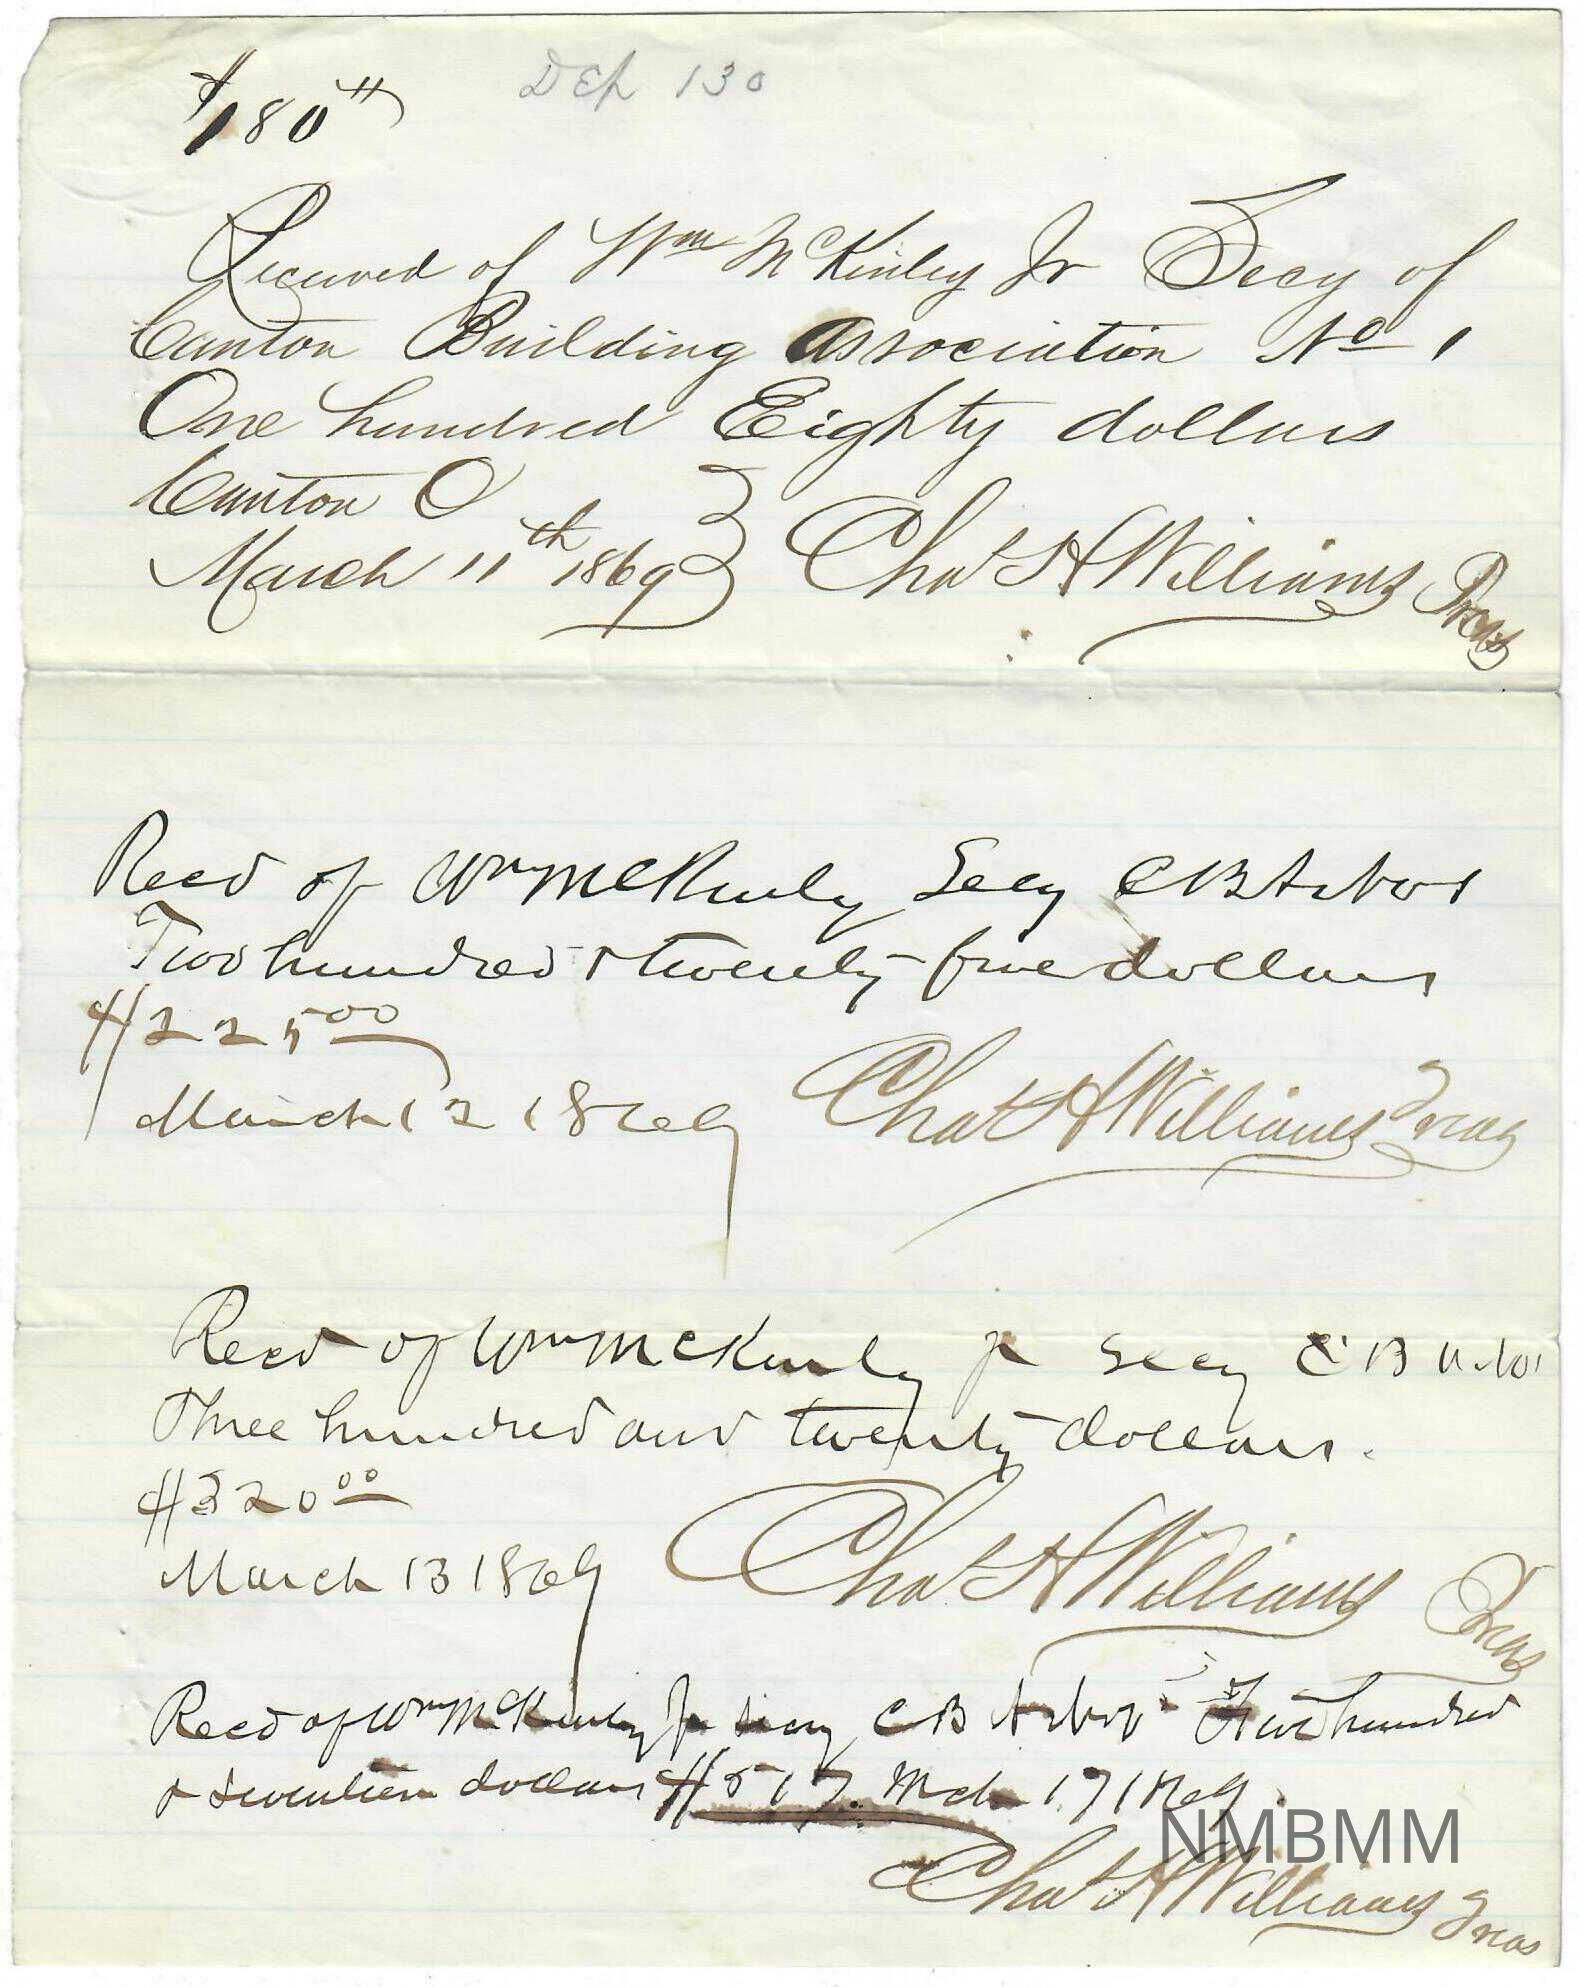 $180
Dep 130
Received of Wm McKinley Jr Secy of
Canton Building Association No 1
One hundred Eighty dollars
Canton O
March 11th 1869
Chas H Williams Treas
Recd of Wm McKinly Secy C B A No 1
Two hundred & twenty five dollars
$225 00
March 12 1869
Chas H Williams Treas
Recd of Wm McKinly Jr Secy C B A No 1
Three hundred and twenty dollars.
$320 00
March 13 1869
Chas H Williams Treas
Recd of Wm McKinly Jr Secy C B A No 1 Five hundred
& seventeen dollars $517. Mch 17 1869.
NMBMM
Chas H Williams Treas